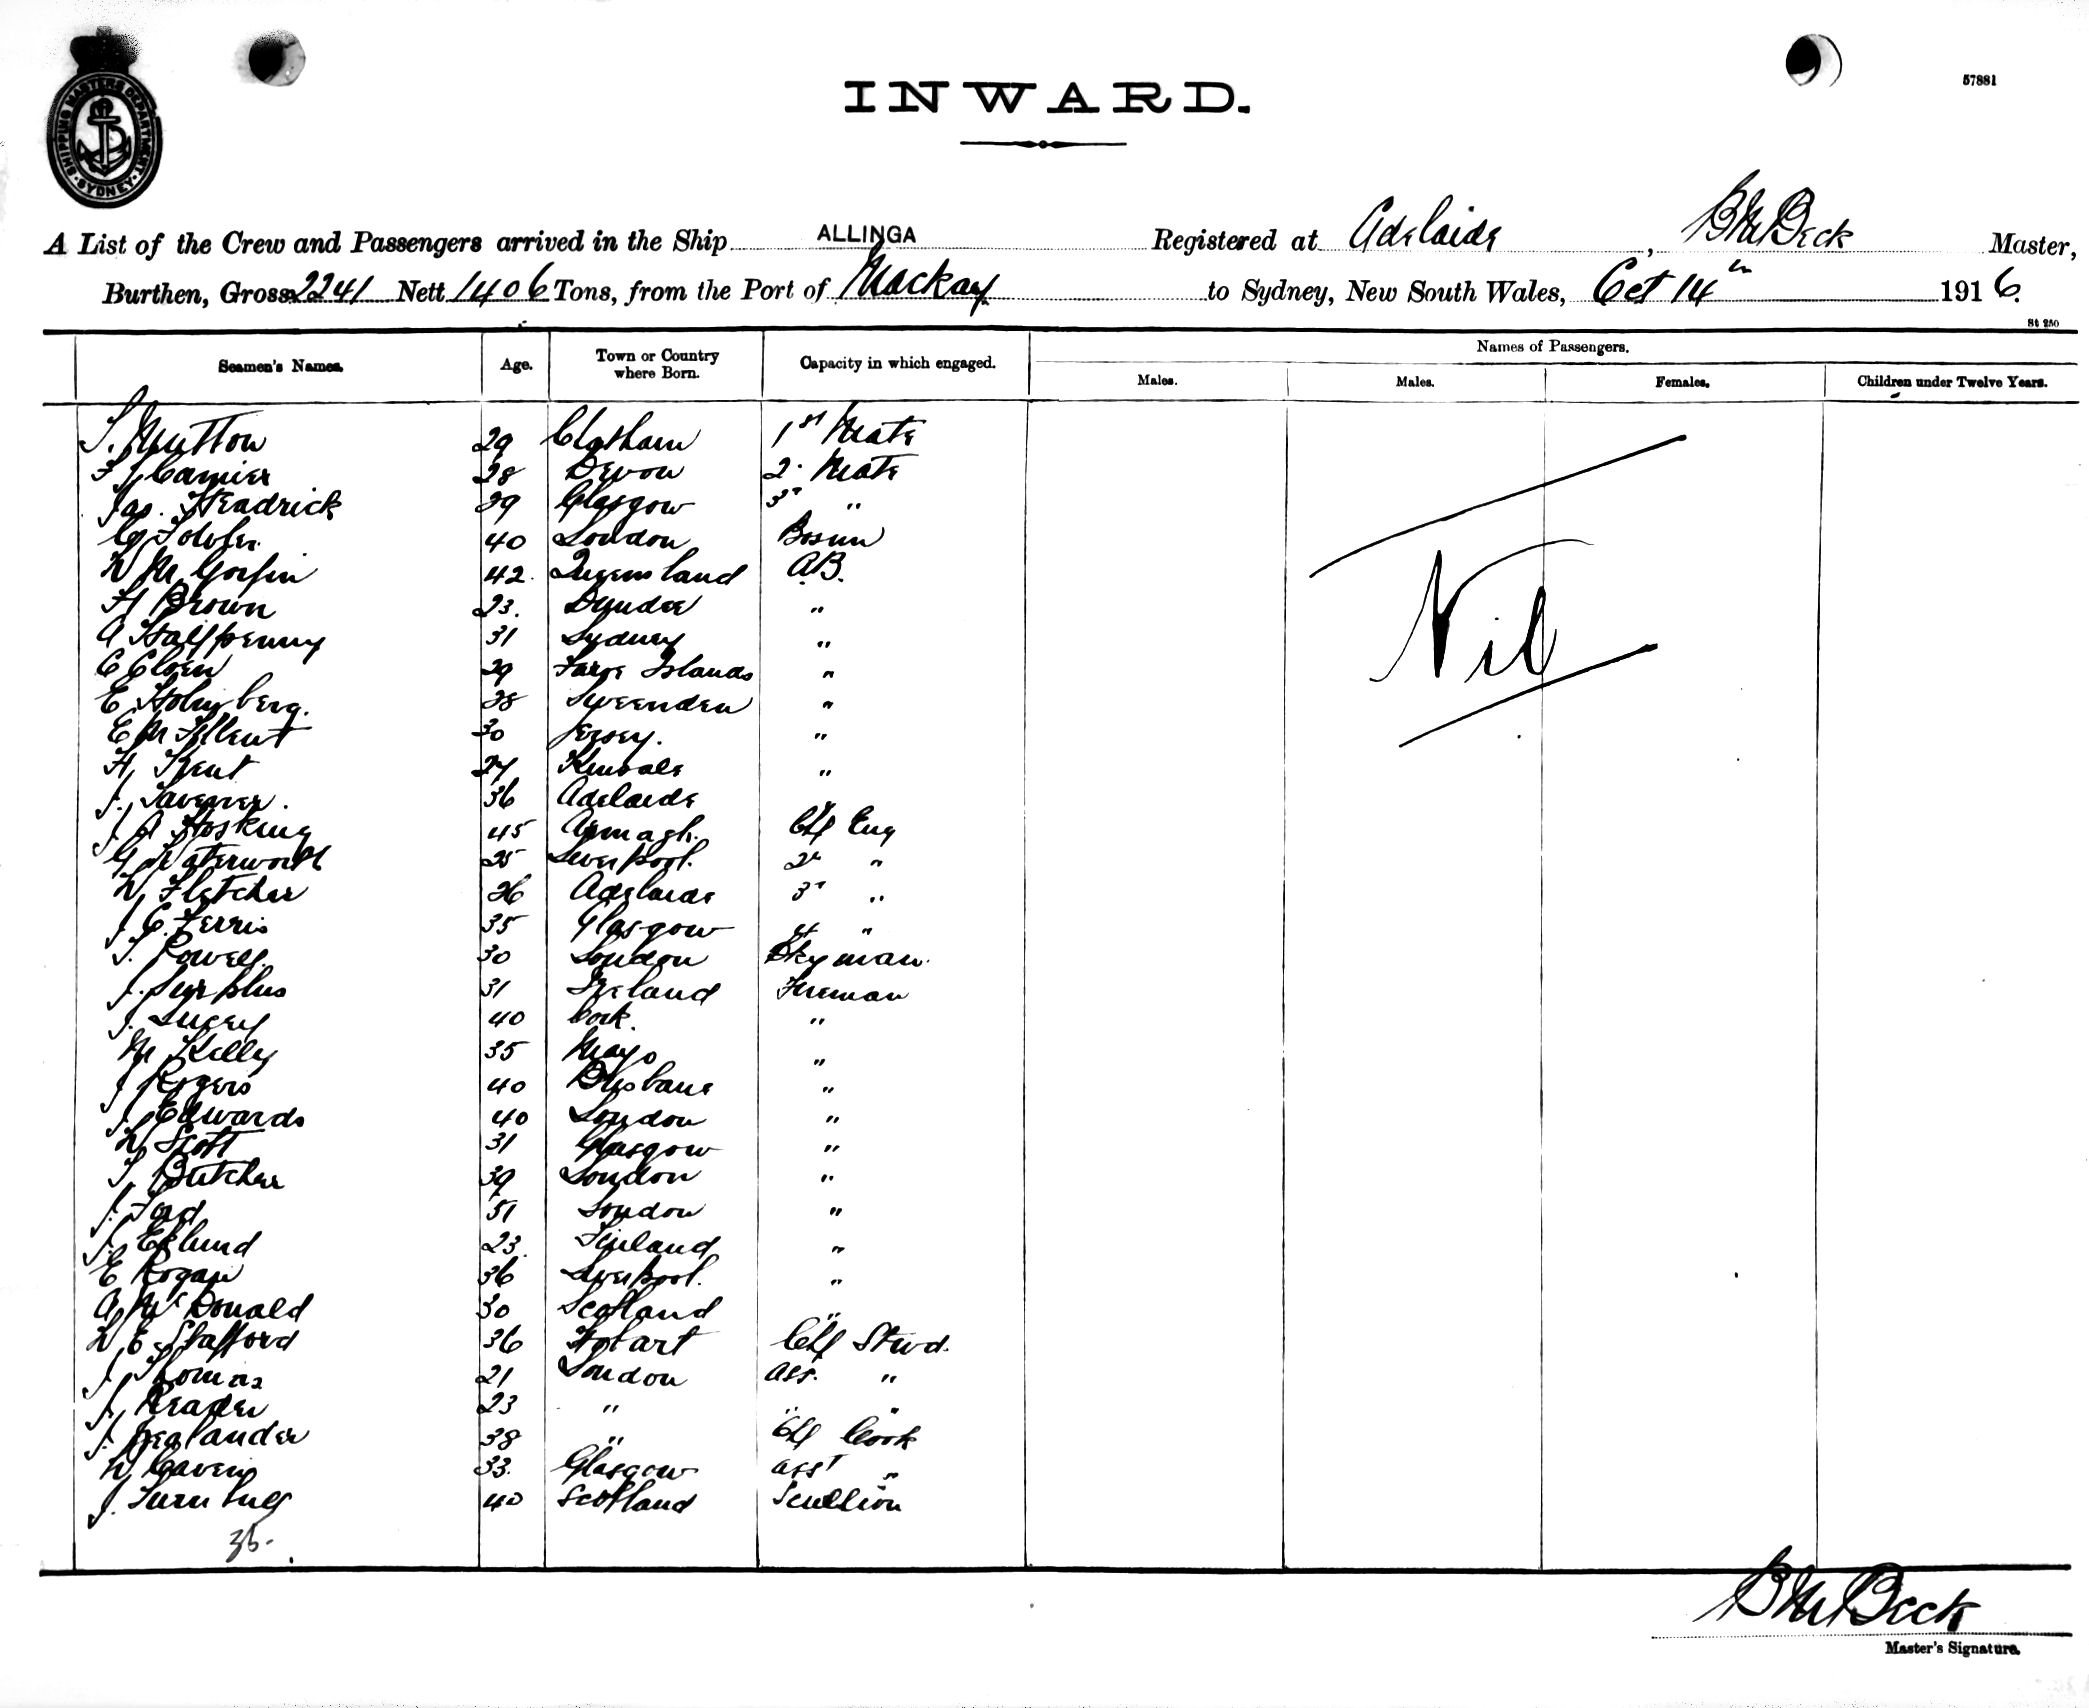 SHIPPING MASTERS DEPARTMENT
SYDNEY
57881
INWARD.
A List of the Crew and Passengers arrived in the Ship ALLINGA Registered at Adelaide, B M Beck Master,
Burthen, Gross 2241 Nett 1406 Tons, from the Port of Mackay to Sydney, New South Wales, Oct 14th 1916.
St 250
Seamen's Names. Age. Town or Country where Born. Capacity in which engaged. Names of Passengers.
Males. Males. Females. Children under Twelve Years.
S. Mutton 29 Chatham 1st Mate
F J Camier 28 Devon 2. Mate
Jas. Headrick 29 Glasgow 3rd "
C Fowler 40 London Bosun
W M 42. Queensland AB.
H Brown 23. Dundee "
A Halfpenny 31 Sydney "
C Cloen 29 Faroe Islands "
E Holmberg. 28 Sweenden "
E M 30 Jersey. "
H, Kent 27 Kinsale "
J, Taverner. 36 Adelaide "
J A Hosking 45 Armagh. Chf Eng
G Waterworth 25 Liverpool. 2nd "
W Fletcher 26 Adelaide 3rd "
J C. Ferris 35 Glasgow 4t "
T. Powell. 30 London Dkyman.
J. Surplus 31 Ireland Fireman
J. Lucey 40 Cork. "
M Kelly 35 Mayo "
J Rogers 40 Brisbane "
J. Edwards 40 London "
W Scott 31 Glasgow "
T, Butcher 39 London "
J. Ford 51 London "
J. Eklund 23. Finland "
E Rogan 36 Liverpool. "
A, McDonald 30 Scotland "
W, E Stafford 36 Hobart Chf Stwd.
J, Thomas 21 London Ass. "
J, Reader 23 " " "
J. 38 " Chf Cook
W Cavens 33. Glasgow Asst "
J. Turnbull 40 Scotland Scullion
Nil
B M Beck
Master's Signature.